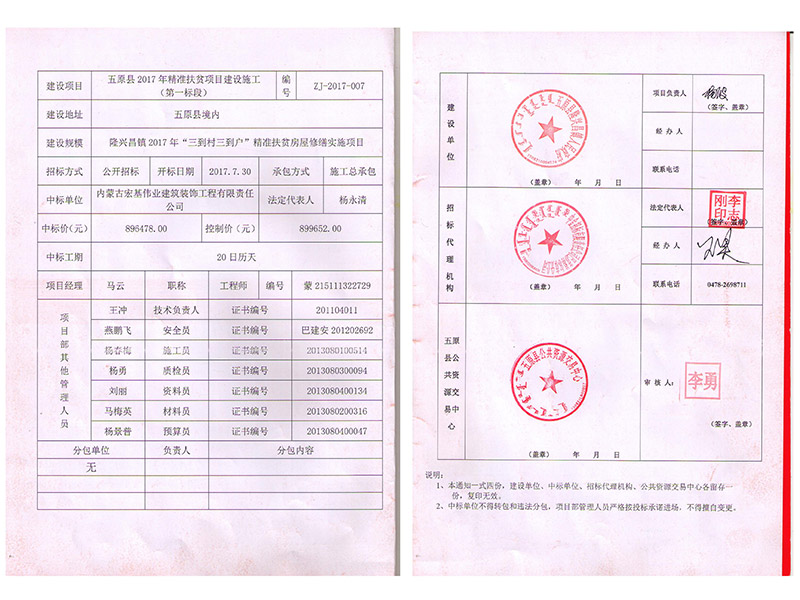 建设项目 五原县2017年精准扶贫项目建设施工（第一标段） 编号 ZJ-2017-007
建设地址 五原县境内
建设规模 隆兴昌镇2017年“三到村三到户”精准扶贫房屋修缮实施项目
招标方式 公开招标 开标日期 2017.7.30 承包方式 施工总承包
中标单位 内蒙古宏基伟业建筑装饰工程有限责任公司 法定代表人 杨永清
中标价(元) 896478.00 控制价（元） 899652.00
中标工期 20日历天
项目经理 马云 职称 工程师 编号 蒙215111322729
项目部其他管理人员
王冲 技术负责人 证书编号 201104011
燕鹏飞 安全员 证书编号 巴建安201202692
杨春梅 施工员 证书编号 2013080100514
杨勇 质检员 证书编号 2013080300094
刘丽 资料员 证书编号 2013080400134
马梅英 材料员 证书编号 2013080200316
杨景普 预算员 证书编号 2013080400047
分包单位 负责人 分包内容
无
建设单位
（盖章） 年 月 日
项目负责人
（签字、盖章）
经办人
联系电话
招标代理机构
（盖章） 年 月 日
法定代表人
李志刚印
（签字、盖章）
经办人
联系电话 0478-2698711
五原县公共资源交易中心
五原县公共资源交易中心
（盖章） 年 月 日
审核人：
李勇
（签字、盖章）
说明：
1、本通知一式四份，建设单位、中标单位、招标代理机构、公共资源交易中心各留存一
份，复印无效。
2、中标单位不得转包和违法分包，项目部管理人员严格按投标承诺进场，不得擅自变更。